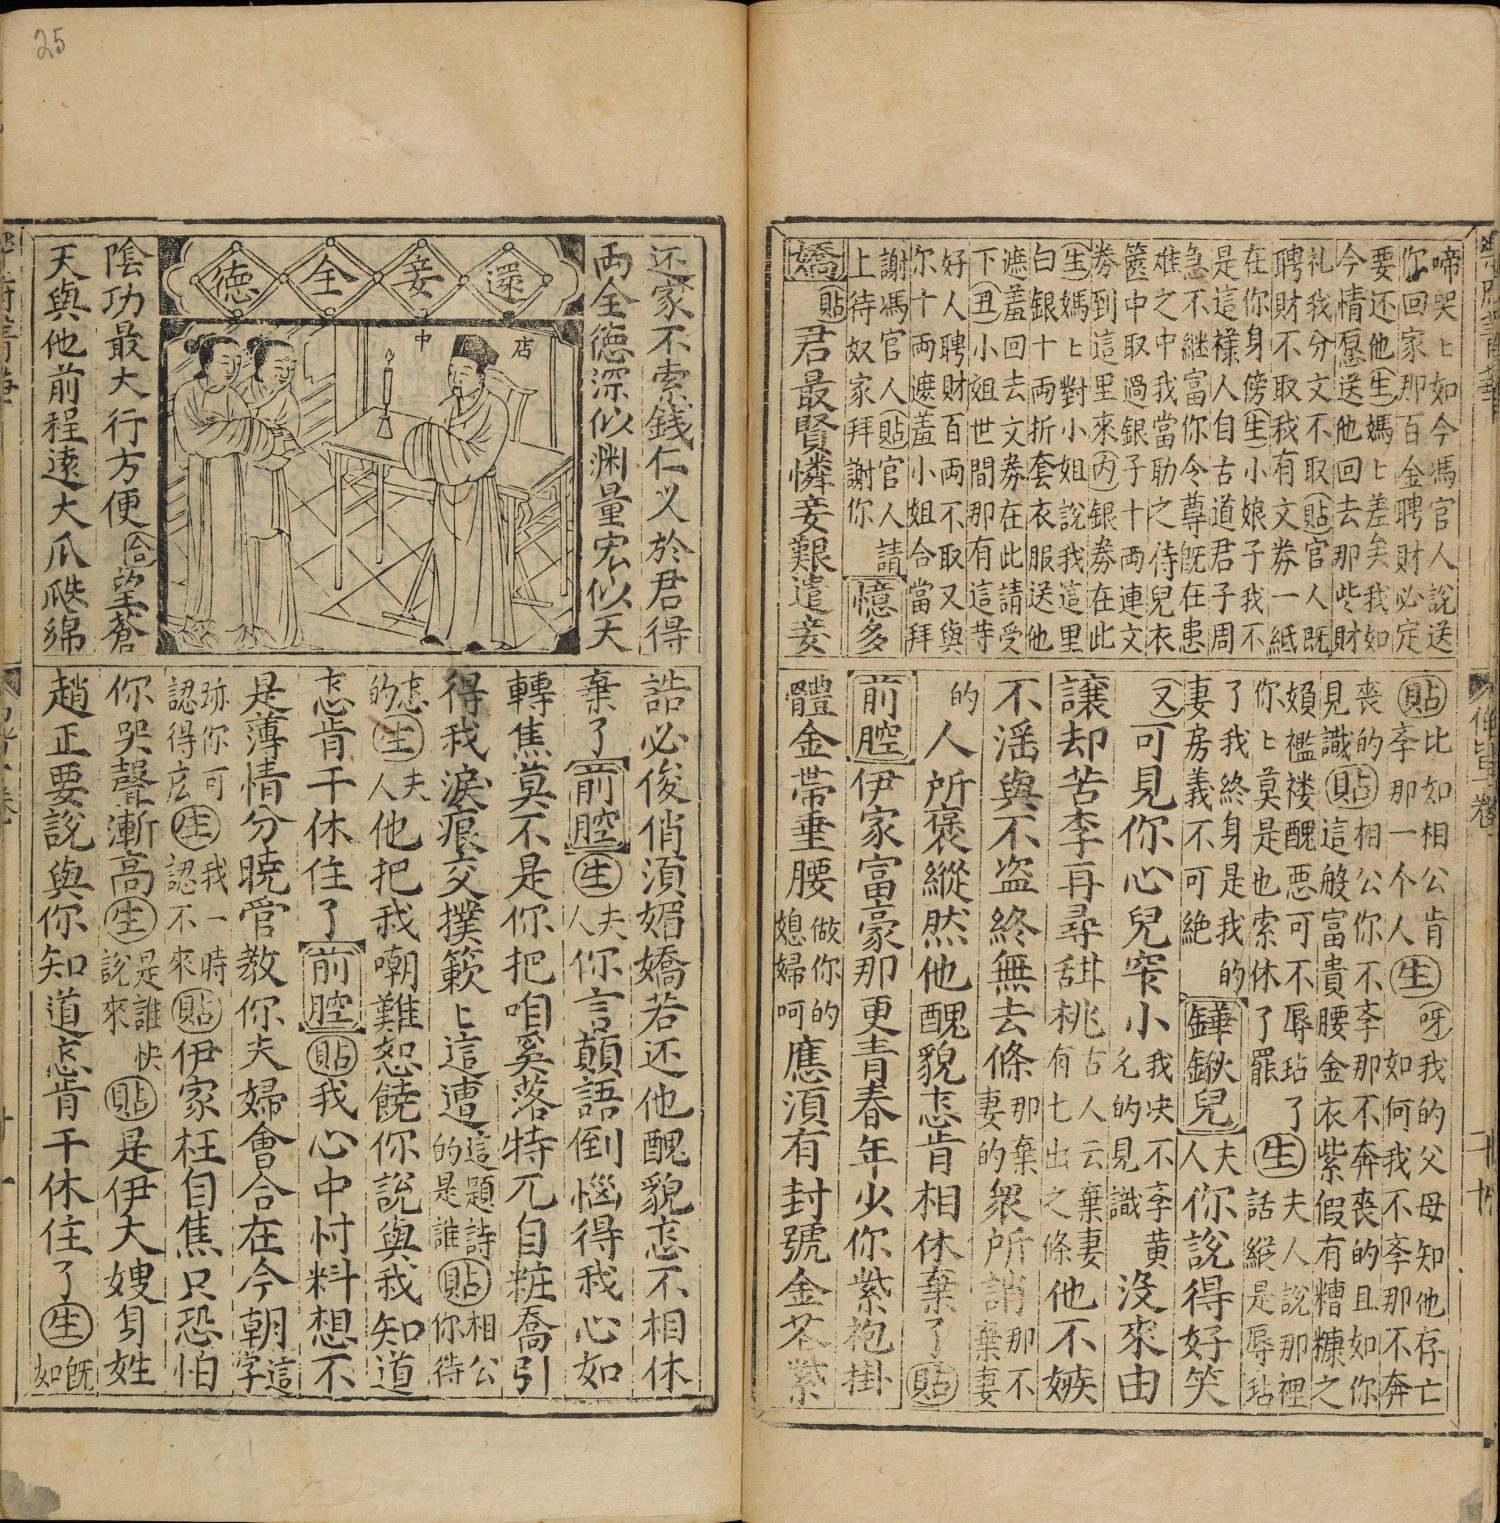 啼哭ヒ如今馮官人說送
你回家那百金聘財必定
要还他生媽ヒ差矣我如
今情愿送他回去那些財
礼我分文不取貼官人既
聘財不取我有文券一紙
在你身傍生小娘子我不
是這樣人自古道君子周
急不継富你令尊既在患
难之中我當助之侍兒衣
篋中取過銀子十两連文
券到這里來丙銀券在此
生媽ヒ對小姐說我這里
白銀十两折套衣服送他
遮羞回去文券在此請受
下丑小姐世間那有這苛
好人聘財百两不取又與
你十两遮羞小姐合當拜
謝馮官人貼官人請
上待奴家拜謝你憶多
嬌貼君最賢憐妾艱遣妾
貼比如相公肯李那一个人生呀我的父母知他存亡如何我不李那不奔
喪的相公你不李那不奔喪的且如你見識貼這般富貴腰金衣紫假有糟糠之
嬪襤褸醜惡可不辱玷了你ヒ莫是也索休了罷生夫人說那裡話縱是辱玷
了我終身是我的妻房義不可絶鏵鍬兒夫人你說得好笑
又可見你心兒窄小我决不李黄允的見識没來由
讓却苦李再尋甜桃古人云棄妻有七出之條他不嫉
不滛與不盗終無去條那棄妻的衆所誚那不棄妻
的人所褒縱然他醜貌怎肯相休棄了貼
前腔伊家富豪那更青春年少你紫袍掛
體金帶垂腰做你的媳婦呵應湏有封號金花紫
还家不索錢仁义於君得
两全德深似渊量宏似天
還妾全德
店中
陰功最大行方便合望蒼
天與他前程遠大瓜瓞綿
誥必俊俏湏媚嬌若还他醜貌怎不相休
棄了前腔生夫人你言顛語倒惱得我心如
轉焦莫不是你把咱奚落特兀自粧喬引
得我淚痕交撲簌ヒ這遭這題詩的是誰貼相公你待
怎的生夫人他把我嘲難恕饒你說與我知道
怎肯干休住了前腔貼我心中忖料想不
是薄情分曉管教你夫婦會合在今朝這字
跡你可認得庅生我一時認不來貼伊家枉自焦只恐怕
你哭聲漸高生是誰快說來貼是伊大嫂身姓
趙正要說與你知道怎肯干休住了生既如
25